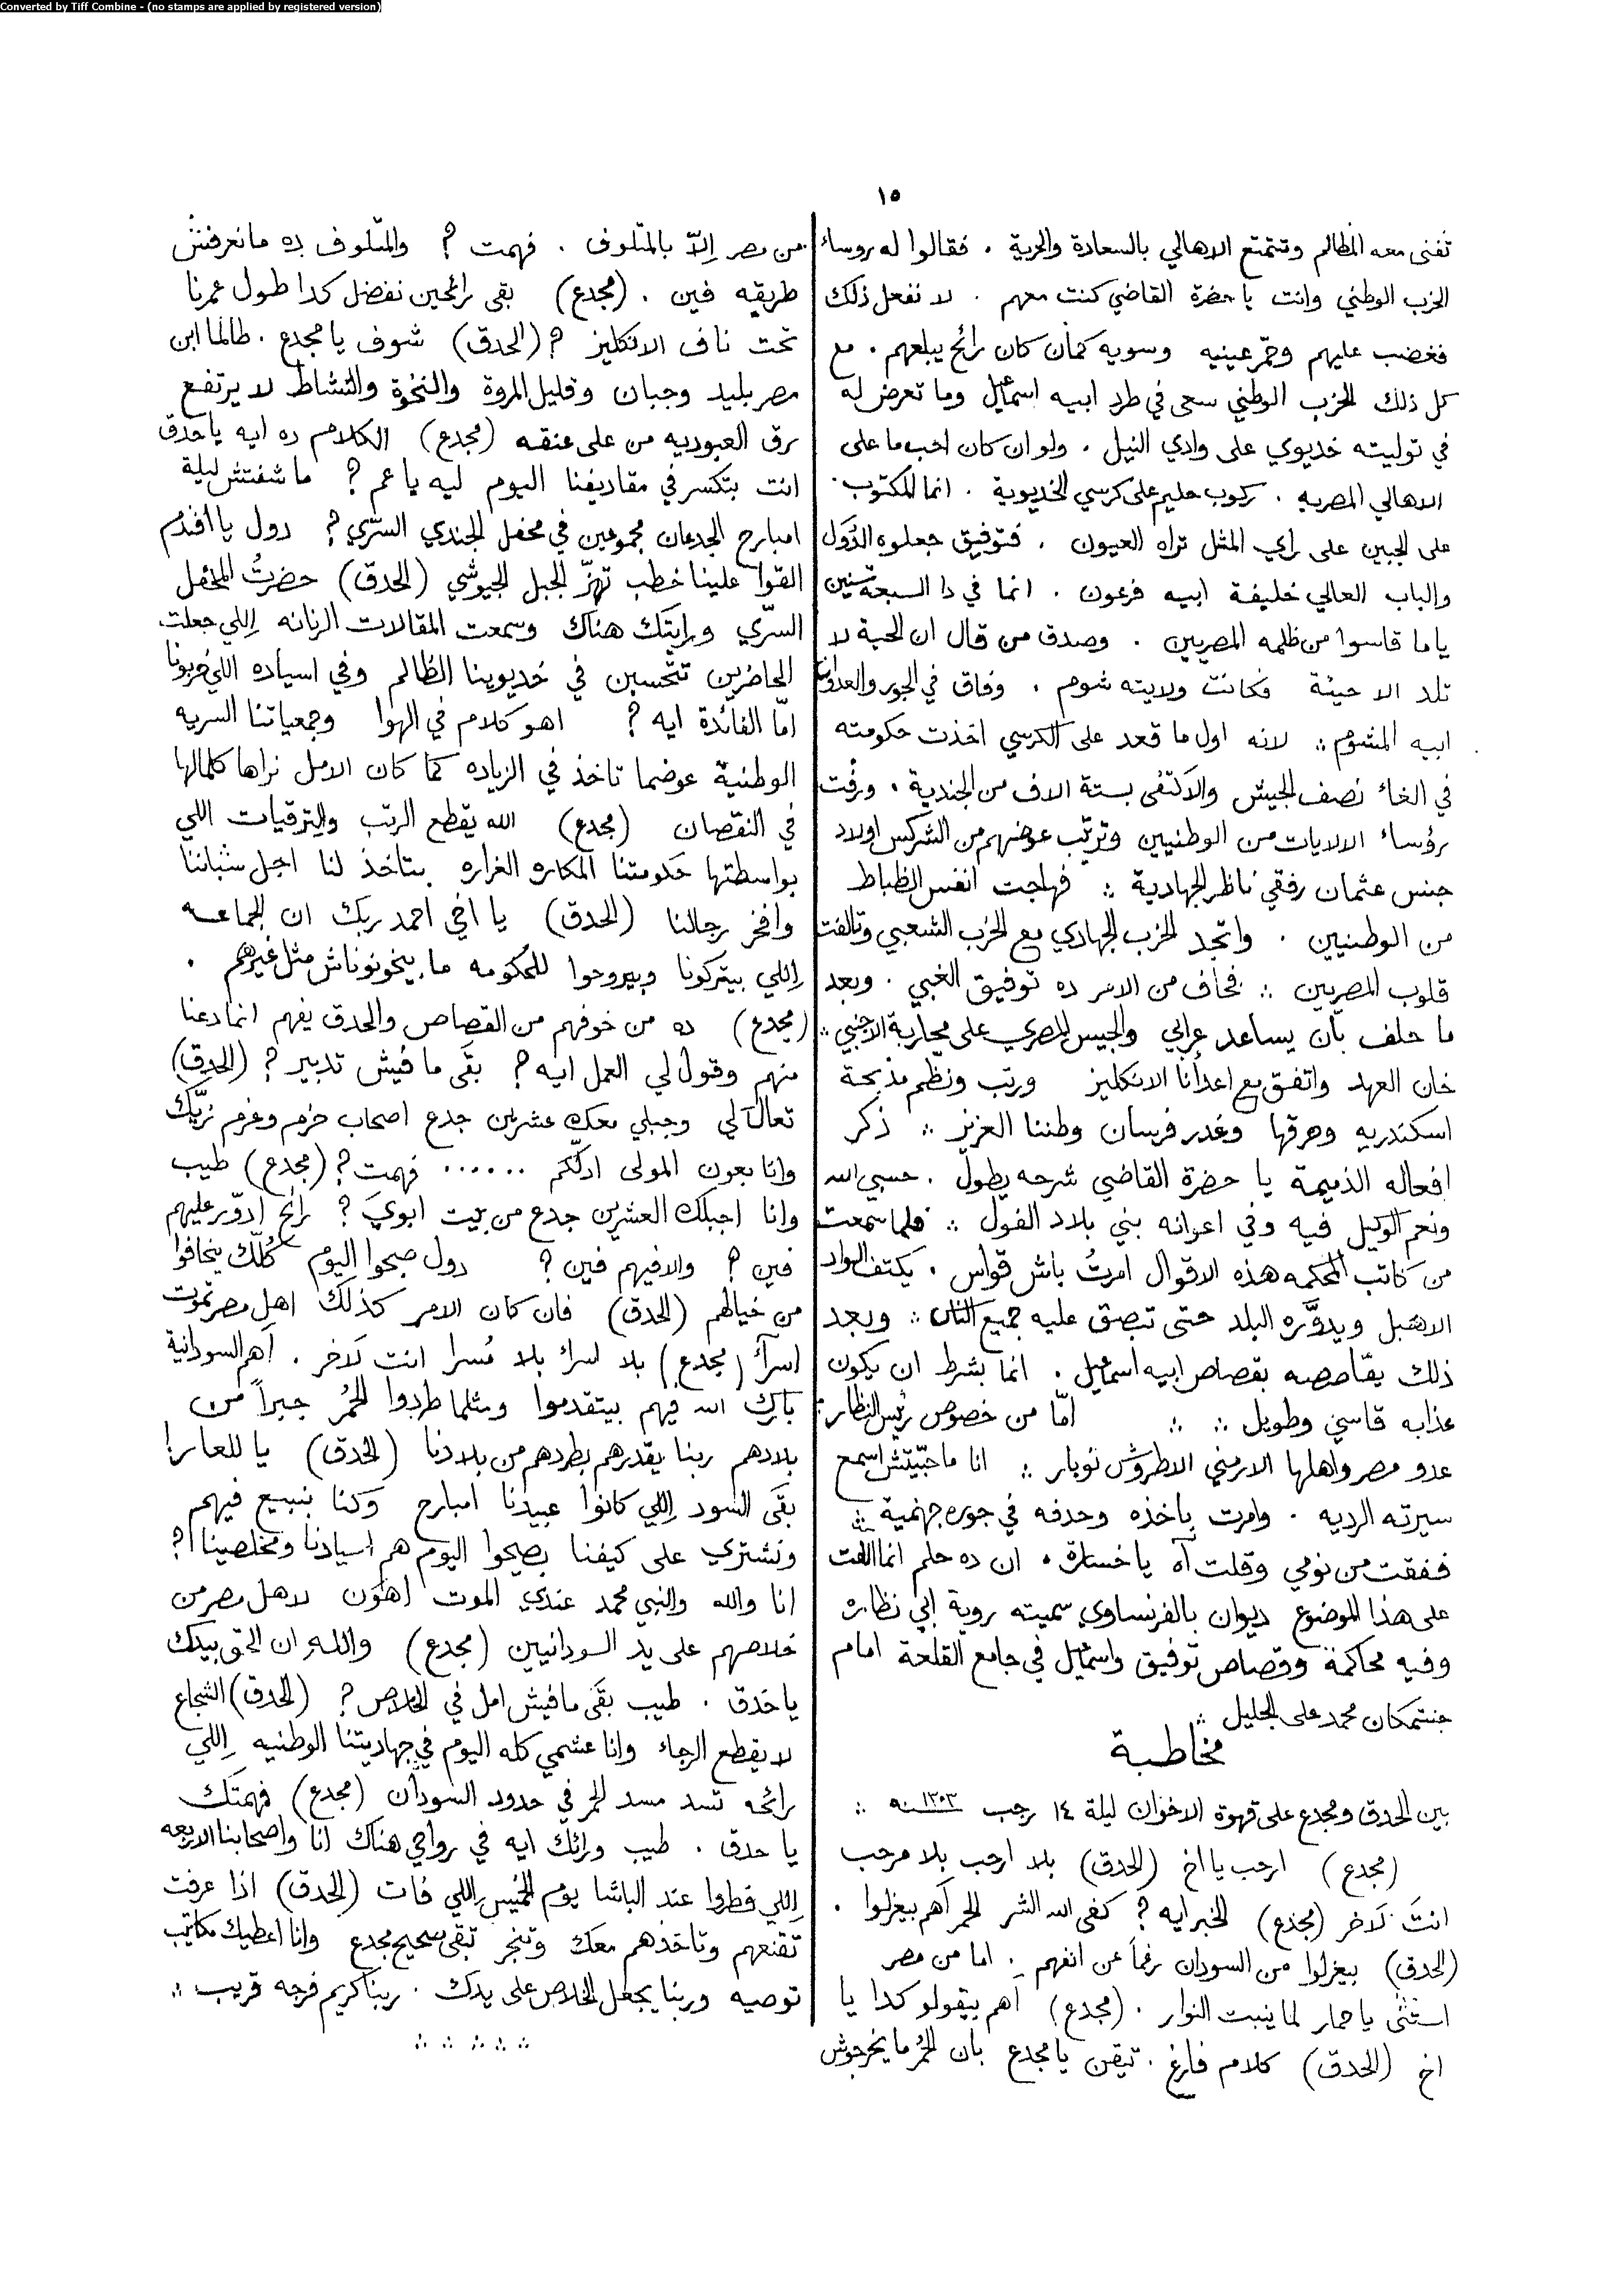 Converted by Tiff Combine - (no stamps are applied by registered version)
١٥
تفنى معه المظالم وتتمتع الاهالي بالسعادة والحرية . فقالوا له روساء
الحزب الوطني وانت يا حضرة القاضي كنت معهم . لا نفعل ذلك
فغضب عليهم وحمّر عينيه وسويه كمان كان رائح يبلعهم . مع
كل ذلك الحزب الوطني سعى في طرد ابيه اسمعيل وما تعرض له
في توليته خديوي على وادي النيل . ولو ان كان احب ما على
الاهالي المصريه . ركوب حليم على كرسي الخديوية . انما المكتوب
على الجبين على راي المثل تراه العيون . فتوفيق جعلوه الدُوَل
والباب العالي خليفة ابيه فرعون . انما في دا السبعة سنين
ياما قاسوا من ظلمه المصريين . وصدق من قال ان الحية لا
تلد الا حية فكانت ولايته شوم . وفاق في الجور والعدوان
ابيه المشوم ∴ لانه اول ما قعد على الكرسي اخذت حكومته
في الغاء نصف الجيش والاكتفى بستة الاف من الجندية . ورفت
رؤساء الالايات من الوطنيين وترتّب عوضهم من الشركس اولاد
جنس عثمان رفقي ناظر الجهادية ∴ فهاجت انفس الظباط
من الوطنيين . واتحد الحزب الجهادي مع الحزب الشعبي وتالفت
قلوب المصريين ∴ فخاف من الامر ده توفيق الغبي . وبعد
ما حلف بأن يساعد عرابي والجيس المصري على محاربة الاجنبي ∴
خان العهد واتفق مع اعدأنا الانكليز ورتب ونظّم مذبحة
اسكندريه وحرقها وغدر فرسان وطننا العزيز ∴ ذكر
افعاله الذميمة يا حضرة القاضي شرحه يطول . حسبي الله
ونعم الوكيل فيه وفي اعوانه بني بلاد الفول ∴ فلما سمعت
من كاتب المحكمه هذه الاقوال امرتُ باش قواس . يكتف الواد
الاهبل ويدوَّره البلد حتى تبصق عليه جميع الناس ∴ وبعد
ذلك يقاصصه بقصاص ابيه اسماعيل . انما بشرط ان يكون
عذابه قاسي وطويل ∴ ∴ امّا من خصوص رئيس النظار
عدو مصر واهلها الارمني الاطروش نوبار ∴ انا ما حبّيتش اسمع
سيرته الرديه . وامرت باخذه وحدفه في جوره جهنمية ∴
ففقت من نومي وقلت آه يا خسارة . ان ده حلم انما الفت
على هذا الموضوع ديوان بالفرنساوي سميته روية ابي نظاره
وفيه محاكمة وقصاص توفيق واسمعيل في جامع القلعة امام
جنتمكان محمد على الجليل ∴
مخاطبة
بين الحدق ومجدع على قهوة الاخوان ليلة ١٤ رجب سنة ١٣٠٣ ∴
(مجدع) ارحب يا اخ (الحدق) بلا ارحب بلا مرحب
انتَ لَاخر (مجدع) الخبر ايه ? كفى الله الشر الحمر آهم بيعزلوا .
(الحدق) بيعزلوا من السودان رغماً عن انفهم . اما من مصر
استنّى يا حمار لما ينبت النوار . (مجدع) آهم بيقولو كدا يا
اخ (الحدق) كلام فارغ . تيقن يا مجدع بان الحُمر ما يخرجوش
من مصر اِلاّ بالمتلوف . فهمت ? والمتلوف ده ما نعرفش
طريقه فين . (مجدع) بقى رائحين نفضل كدا طول عمرنا
تحت ناف الانكليز ? (الحدق) شوف يا مجدع . طالما ابن
مصر بليد وجبان وقليل المروة والنخوة والنشاط لا يرتفع
رق العبوديه من على عنقه (مجدع) الكلام ده ايه يا حدق
انت بتكسر في مقاديفنا اليوم ليه يا عم ? ما شفتش ليلة
امبارح الجدعان مجموعين في محفل الجندي السّري ? دول يا افندم
القوا علينا خطب تهزّ الجبل الجيوشي (الحدق) حضرتُ المحفل
السّري ورايتك هناك وسمعت المقالات الرنانه اِللي جعلت
الحاضرين تتحسين في خديوينا الظالم وفي اسياده اللي خربونا
امّا الفائدة ايه ? اهو كلام في الهوا وجمعياتنا السريه
الوطنية عوضما تاخذ في الزياده كما كان الامل نراها كلمالها
في النقصان (مجدع) الله يقطع الرتب والترقيات اللي
بواسطتها حكومتنا المكاره الغراره بتاخذ لنا اجل شباننا
وافخر رجالنا (الحدق) يا اخي احمد ربك ان الجماعه
اِللي بيتركونا وبيروحوا للحكومه ما بيخونوناش مثل غيرهم .
(مجدع) ده من خوفهم من القصاص والحدق يفهم انما دعنا
منهم وقول لي العمل ايه ? بقَى ما فيش تدبير ? (الحدق)
تعالَ لي وجبلي معك عشرين جدع اصحاب حزم وعزم زيّك
وانا بعون المولى ادلّكم ...... فهمت ? (مجدع) طيب
وانا اجبلك العشرين جدع من بيت ابويَ ? رائح ادوّر عليهم
فين ? والاقيهم فين ? دول صبحوا اليوم كُلّك يخافوا
من خيالهم (الحدق) فان كان الامر كذلك اهل مصر تموت
اسرآ (مجدع) بلا اسرا بلا مُسرا انت لَاخر . آهم السودانية
بارك الله فيهم بيتقدموا ومثلما طردوا الحُمر جبراً من
بلادهم ربنا يقدرهم بطردهم من بلادنا (الحدق) يا للعار !
بقَى السود اِللي كانوا عبيدنا امبارح وكنا بنبيع فيهم
ونشتري على كيفنا يصبحوا اليوم هم اسيادنا ومخلصينا ?!
انا والله والنبي محمد عندي الموت اهوَن لاهل مصر من
خلاصهم على يد السودانيين (مجدع) والله ان الحق بيدك
يا حدق . طيب بقَى مافيش امل في الخلاص ? (الحدق) الشجاع
لا يقطع الرجاء وانا عشمي كله اليوم في جهاديتنا الوطنيه اِللي
رائحه تسد مسد الحمر في حدود السودان (مجدع) فهمتك
يا حدق . طيب ورائك ايه في رواحي هناك انا واصحابنا الاربعه
اِللي فطروا عند الباشا يوم الخميس اِللي فات (الحدق) اذا عرفت
تقنعهم وتاخذهم معك وتنجر تبقى صحيح مجدع وانا اعطيك مكاتيب
توصيه وربنا يجعل الخلاص على يدك . ربنا كريم فرجه قريب ∴
∴ ∴ ∴ ∴ ∴